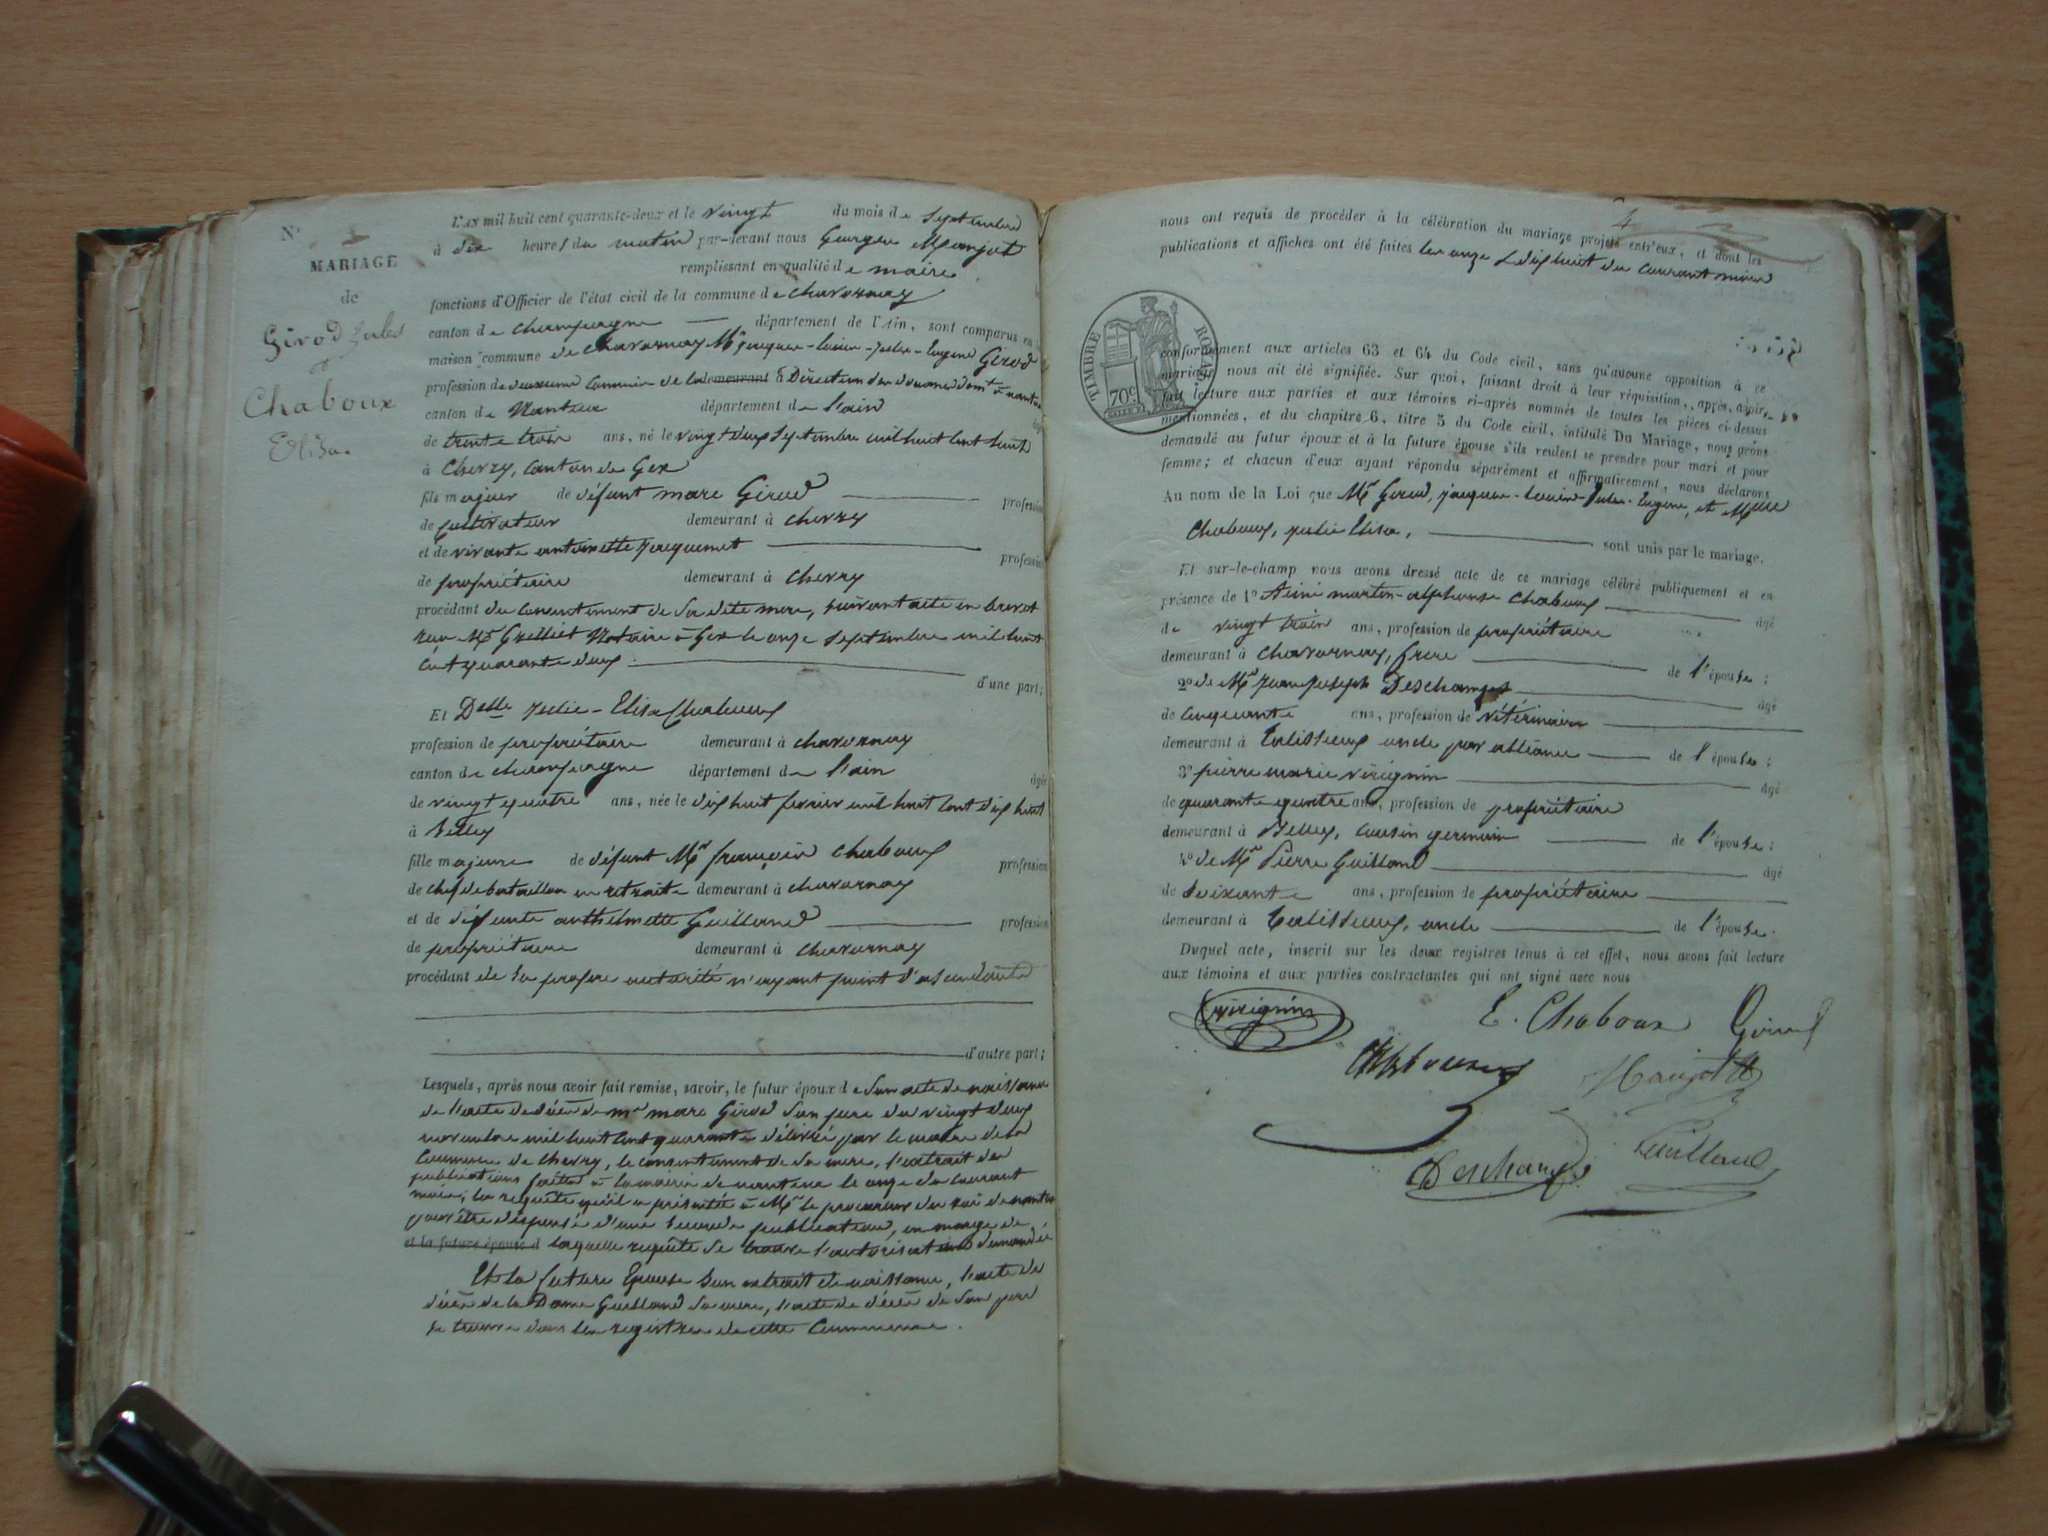 N°
MARIAGE
de
Girod Jules
et
Chaboux
Eliza
L'AN mil huit cent quarante-deux et le vingt du mois de septembre
à dix heures du matin par-devant nous Georges Manjot
remplissant en qualité de maire
fonctions d'Officier de l'état civil de la commune de Chavornay
canton de Champagne département de l'Ain, sont comparus en
maison commune de Chavornay Mr jacques-louis-jules-Eugène Girod
profession de deuxieme Commis de la demeurant à Direction des douanes domt à nantua
canton de Nantua département de l'ain
âgé
de trente trois ans, né le vingt deux Septembre mil huit cent huit
à Chevry, Canton de Gex
fils majeur de défunt marc Girod profession
de Cultivateur demeurant à chevry
et de vivante antoinette jacquemet profession
de propriétaire demeurant à chevry
procédant du consentement de sa dite mere, suivant acte en brevet
reçu Mr Grelliet Notaire à Gex le onze septembre mil huit
cent quarante deux.
d'une part;
Et Delle julie-Elisa Chaboux
profession de propriétaire demeurant à chavornay
canton de champagne département de l'ain
âgée
de vingt quatre ans, née le dix huit fevrier mil huit cent dix huit
à Belley
fille majeure de défunt Mr françois Chaboux profession
de chef de bataillon en retraite demeurant à chavornay
et de défunte anthelmette Guilland profession
de propriétaire demeurant à chavornay
procédant de sa propre autorité n'ayant point d'ascendants
d'autre part;
Lesquels, après nous avoir fait remise, savoir, le futur époux de son acte de naissance
de l'acte de décès de Mr marc Girod son pere du vingt deux
novembre mil huit cent quarante délivré par le maire de la
Commune de Chevry, le consentement de sa mere, l'extrait des
publications faites à la mairie de nantua le onze du courant
mois, la requête qu'il a présentée à Mr le procureur du roi de nantua
pour être dispensé d'une seconde publication, en marge de
et la future épouse d laquelle requête se trouve l'autorisation demandée
Et la future Epouse son extrait de naissance, l'acte de
décès de la Dame Guilland sa mere, l'acte de décès de son pere
se trouve dans les registres de cette Commune.
4
nous ont requis de procéder à la célébration du mariage projeté entr'eux, et dont les
publications et affiches ont été faites les onze & dix huit du courant mois
TIMBRE ROYAL
70c
conformément aux articles 63 et 64 du Code civil, sans qu'aucune opposition à ce
mariage nous ait été signifiée. Sur quoi, faisant droit à leur réquisition, après avoir
fait lecture aux parties et aux témoins ci-après nommés de toutes les pièces ci-dessus
mentionnées, et du chapitre 6, titre 5 du Code civil, intitulé Du Mariage, nous avons
demandé au futur époux et à la future épouse s'ils veulent se prendre pour mari et pour
femme; et chacun d'eux ayant répondu séparément et affirmativement, nous déclarons
Au nom de la Loi que Mr Girod, jacques-louis-jules-Eugène, et Mlle
Chaboux, julie Elisa, sont unis par le mariage.
Et sur-le-champ nous avons dressé acte de ce mariage célébré publiquement et en
présence de 1° Aimé martin-alphonse Chaboux
âgé
de vingt trois ans, profession de propriétaire
demeurant à chavornay, frere de l'épouse;
2° de Mr jean joseph Deschamps
âgé
de cinquante ans, profession de vétérinaire
demeurant à Talissieux oncle par alliance de l'épouse;
3° pierre marie virignin
âgé
de quarante quatre ans, profession de propriétaire
demeurant à Belley, cousin germain de l'épouse;
4° de Mr Pierre Guilland
âgé
de soixante ans, profession de propriétaire
demeurant à Talissieux, oncle de l'épouse.
Duquel acte, inscrit sur les deux registres tenus à cet effet, nous avons fait lecture
aux témoins et aux parties contractantes qui ont signé avec nous
virignin E. Chaboux Girod
Chaboux Manjot
Deschamps Guilland